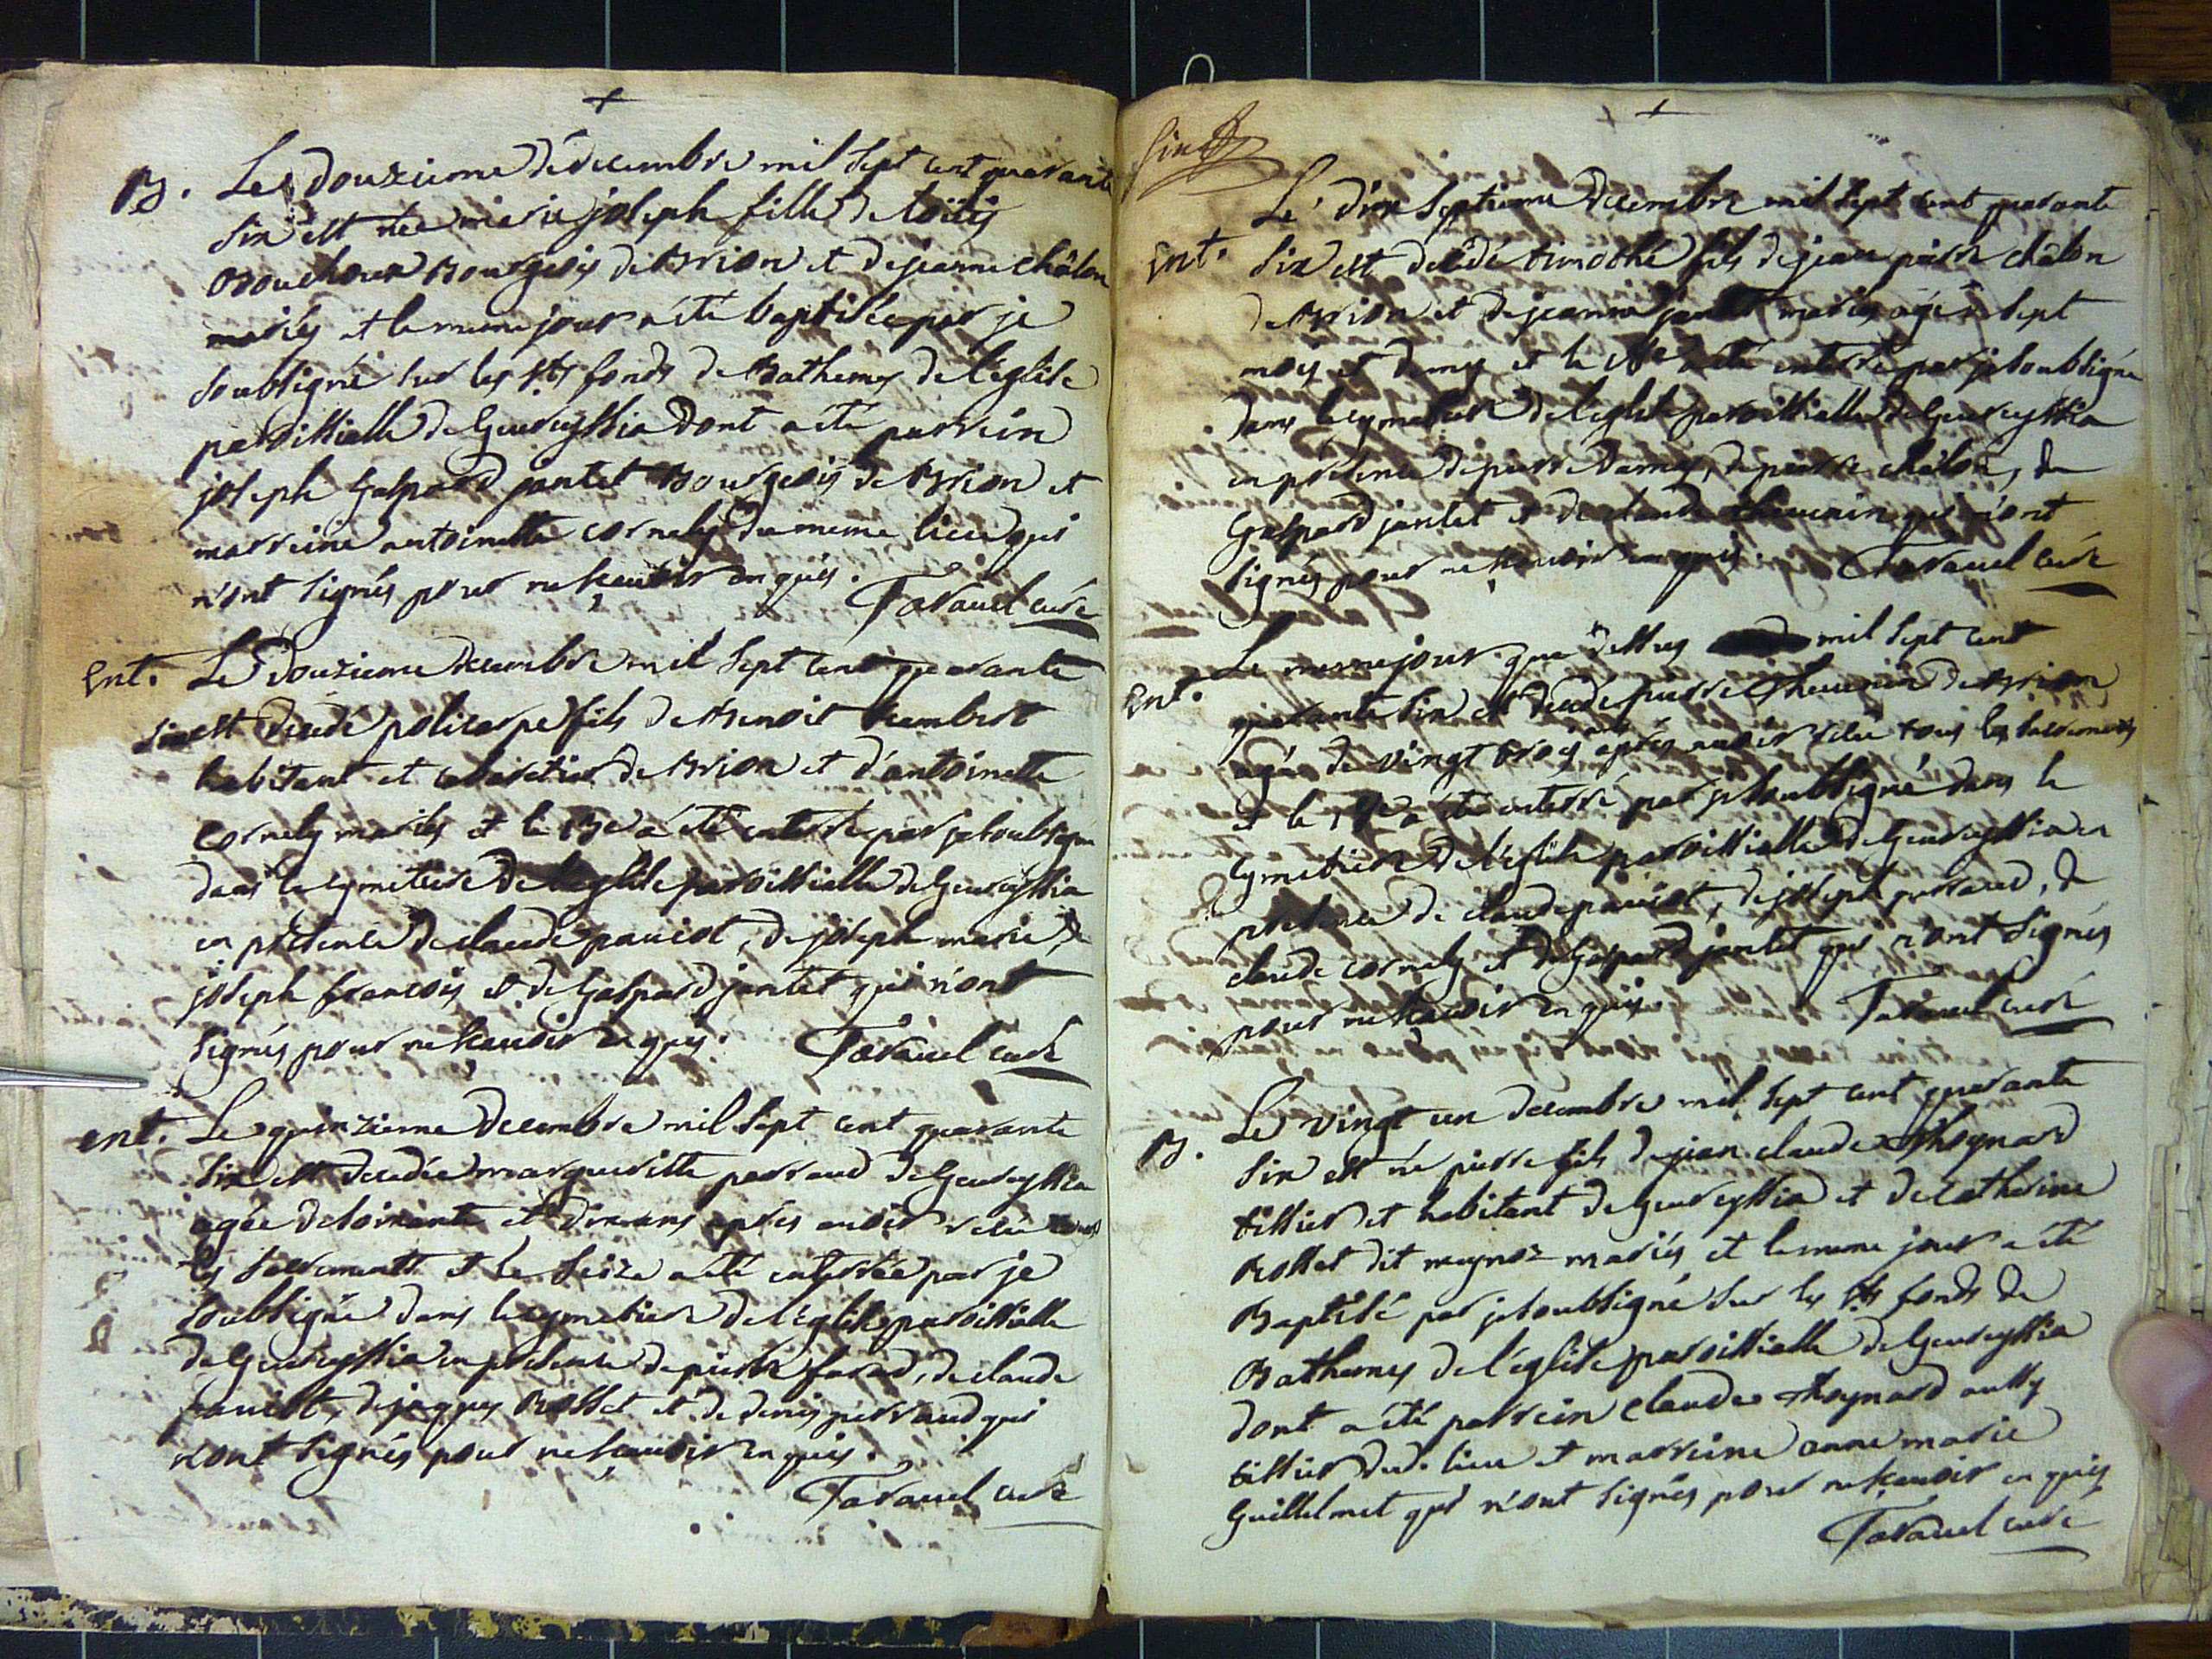 +
B. Le douzieme décembre mil sept cent quarante
six est née marie joseph fille de loüis
Bouchoux Bourgeois de Brion et de jeanne châlon
mariés et le meme jour a été baptisée par je
soubsigné sur les sts fonds de Bathemes de l'eglise
paroissialle de Geureyssia dont a été parrein
joseph Gaspard jantet Bourgeois de Brion et
marreine antoinette cornely du meme lieu qui
n'ont signés pour ne sçauoir enquis.
Tavauel curé
Ent. Le douzieme decembre mil sept cent quarante
six est decedé policarpe fils de Benoit humbert
habitant et cabaretier de Brion et d'antoinette
Cornely mariés et le 13e a été enterré par je soubsigné
dans le cymetiere de l'eglise paroissialle de Geureyssia
en présence de claude pauiot, de joseph marie, de
joseph francois et de Gaspard jantet qui n'ont
signés pour ne sçauoir enquis. Tavauel curé
ent. Le quinzieme decembre mil sept cent quarante
six est decedée margueritte perraud de Geureyssia
agée de soixante et dix ans apres auoir receu tous
les sacrements et le seize a été enterrée par je
soubsigné dans le cymetiere de l'eglise paroissialle
de Geureyssia en presence de pierre farod, de claude
pauiot, de jaques Rosset et de denis perraud qui
n'ont signés pour ne sçauoir enquis.
Tavauel curé
+
Six
Le dix septieme decembre mil sept cent quarante
Ent. six est decedé timothé fils de jean pierre châlon
de Brion et de jeanne jantet mariés agé de sept
mois et demy et le 18e a été enterré par je soubsigné
dans le cymetiere de l'eglise paroissialle de Geureyssia
en présence de pierre Darmey, de pierre châlon, de
Gaspard jantet et de claude theuenin qui n'ont
signés pour ne sçauoir enquis. Tavauel curé
Le meme jour que dessus mil sept cent
Ent. quarante six est decedé pierre theuenin de Brion
agé de vingt trois ans apres auoir receu tous les sacrements
et le 18e a été enterré par je soubsigné dans le
cymetiere de l'eglise paroissialle de Geureyssia en
presence de claude pauiot, de joseph perraud, de
claude cornely et de Gaspard jantet qui n'ont signés
pour ne sçauoir enquis. Tavauel curé
Le vingt un decembre mil sept cent quarante
B. six est né pierre fils de jean claude thoynard
tissier et habitant de Geureyssia et de catherine
Rosset dit meynoz mariés, et le meme jour a été
Baptisé par je soubsigné sur les sts fonds de
Bathemes de l'eglise paroissialle de Geureyssia
dont a été parrein Claude thoynard aussy
tissier dud. lieu et marreine anne marie
Guillelmet qui n'ont signés pour ne sçauoir enquis
Tavauel curé